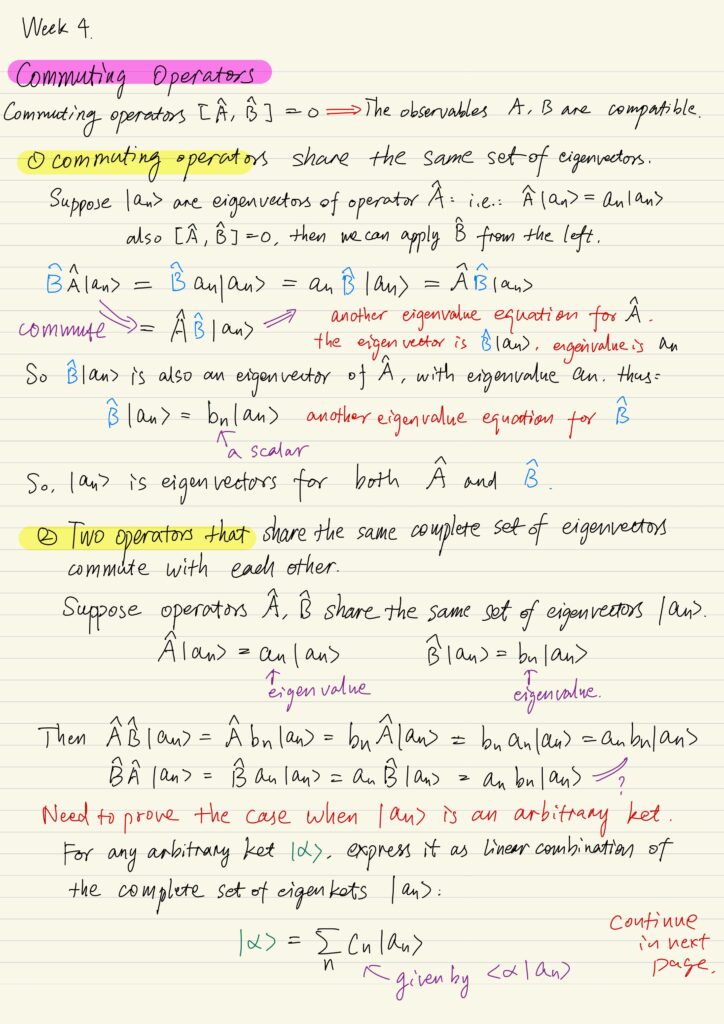 Week 4.
Commuting Operators
Commuting operators [Â, B̂] = 0 ⟹ The observables A, B are compatible.
① commuting operators share the same set of eigenvectors.
Suppose |an> are eigenvectors of operator Â: i.e.: Â|an> = an|an>
also [Â, B̂]=0, then we can apply B̂ from the left.
B̂Â|an> = B̂ an|an> = an B̂|an> = ÂB̂|an>
commute = ÂB̂|an> ⟹ another eigenvalue equation for Â.
the eigenvector is B̂|an>, eigenvalue is an
So B̂|an> is also an eigenvector of Â, with eigenvalue an. thus:
B̂|an> = bn|an> another eigenvalue equation for B̂
a scalar
So, |an> is eigenvectors for both Â and B̂.
② Two operators that share the same complete set of eigenvectors
commute with each other.
Suppose operators Â, B̂ share the same set of eigenvectors |an>.
Â|an> = an|an> B̂|an> = bn|an>
↑ eigenvalue ↑ eigenvalue.
Then ÂB̂|an> = Âbn|an> = bnÂ|an> = bn an|an> = an bn|an>
B̂Â|an> = B̂an|an> = anB̂|an> = an bn|an> ?
Need to prove the case when |an> is an arbitrary ket.
For any arbitrary ket |α>, express it as linear combination of
the complete set of eigenkets |an>:
|α> = ∑n Cn|an>
given by <α|an>
Continue
in next
page.